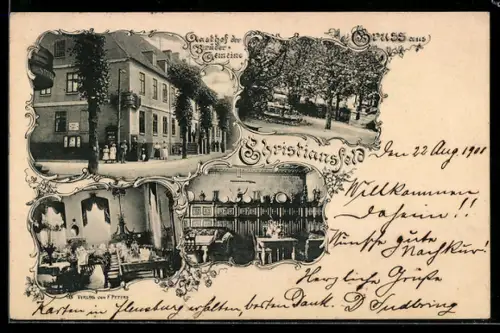 Gasthof der
Brüder-
Gemeine
Gruss aus
Christiansfeld
Den 22 Aug. 1901
Willkommen
daheim!!
Wünsche gute
Nachkur!
Herzliche Grüße
Karten in Flensburg erhalten, besten Dank. D
VERLAG VON